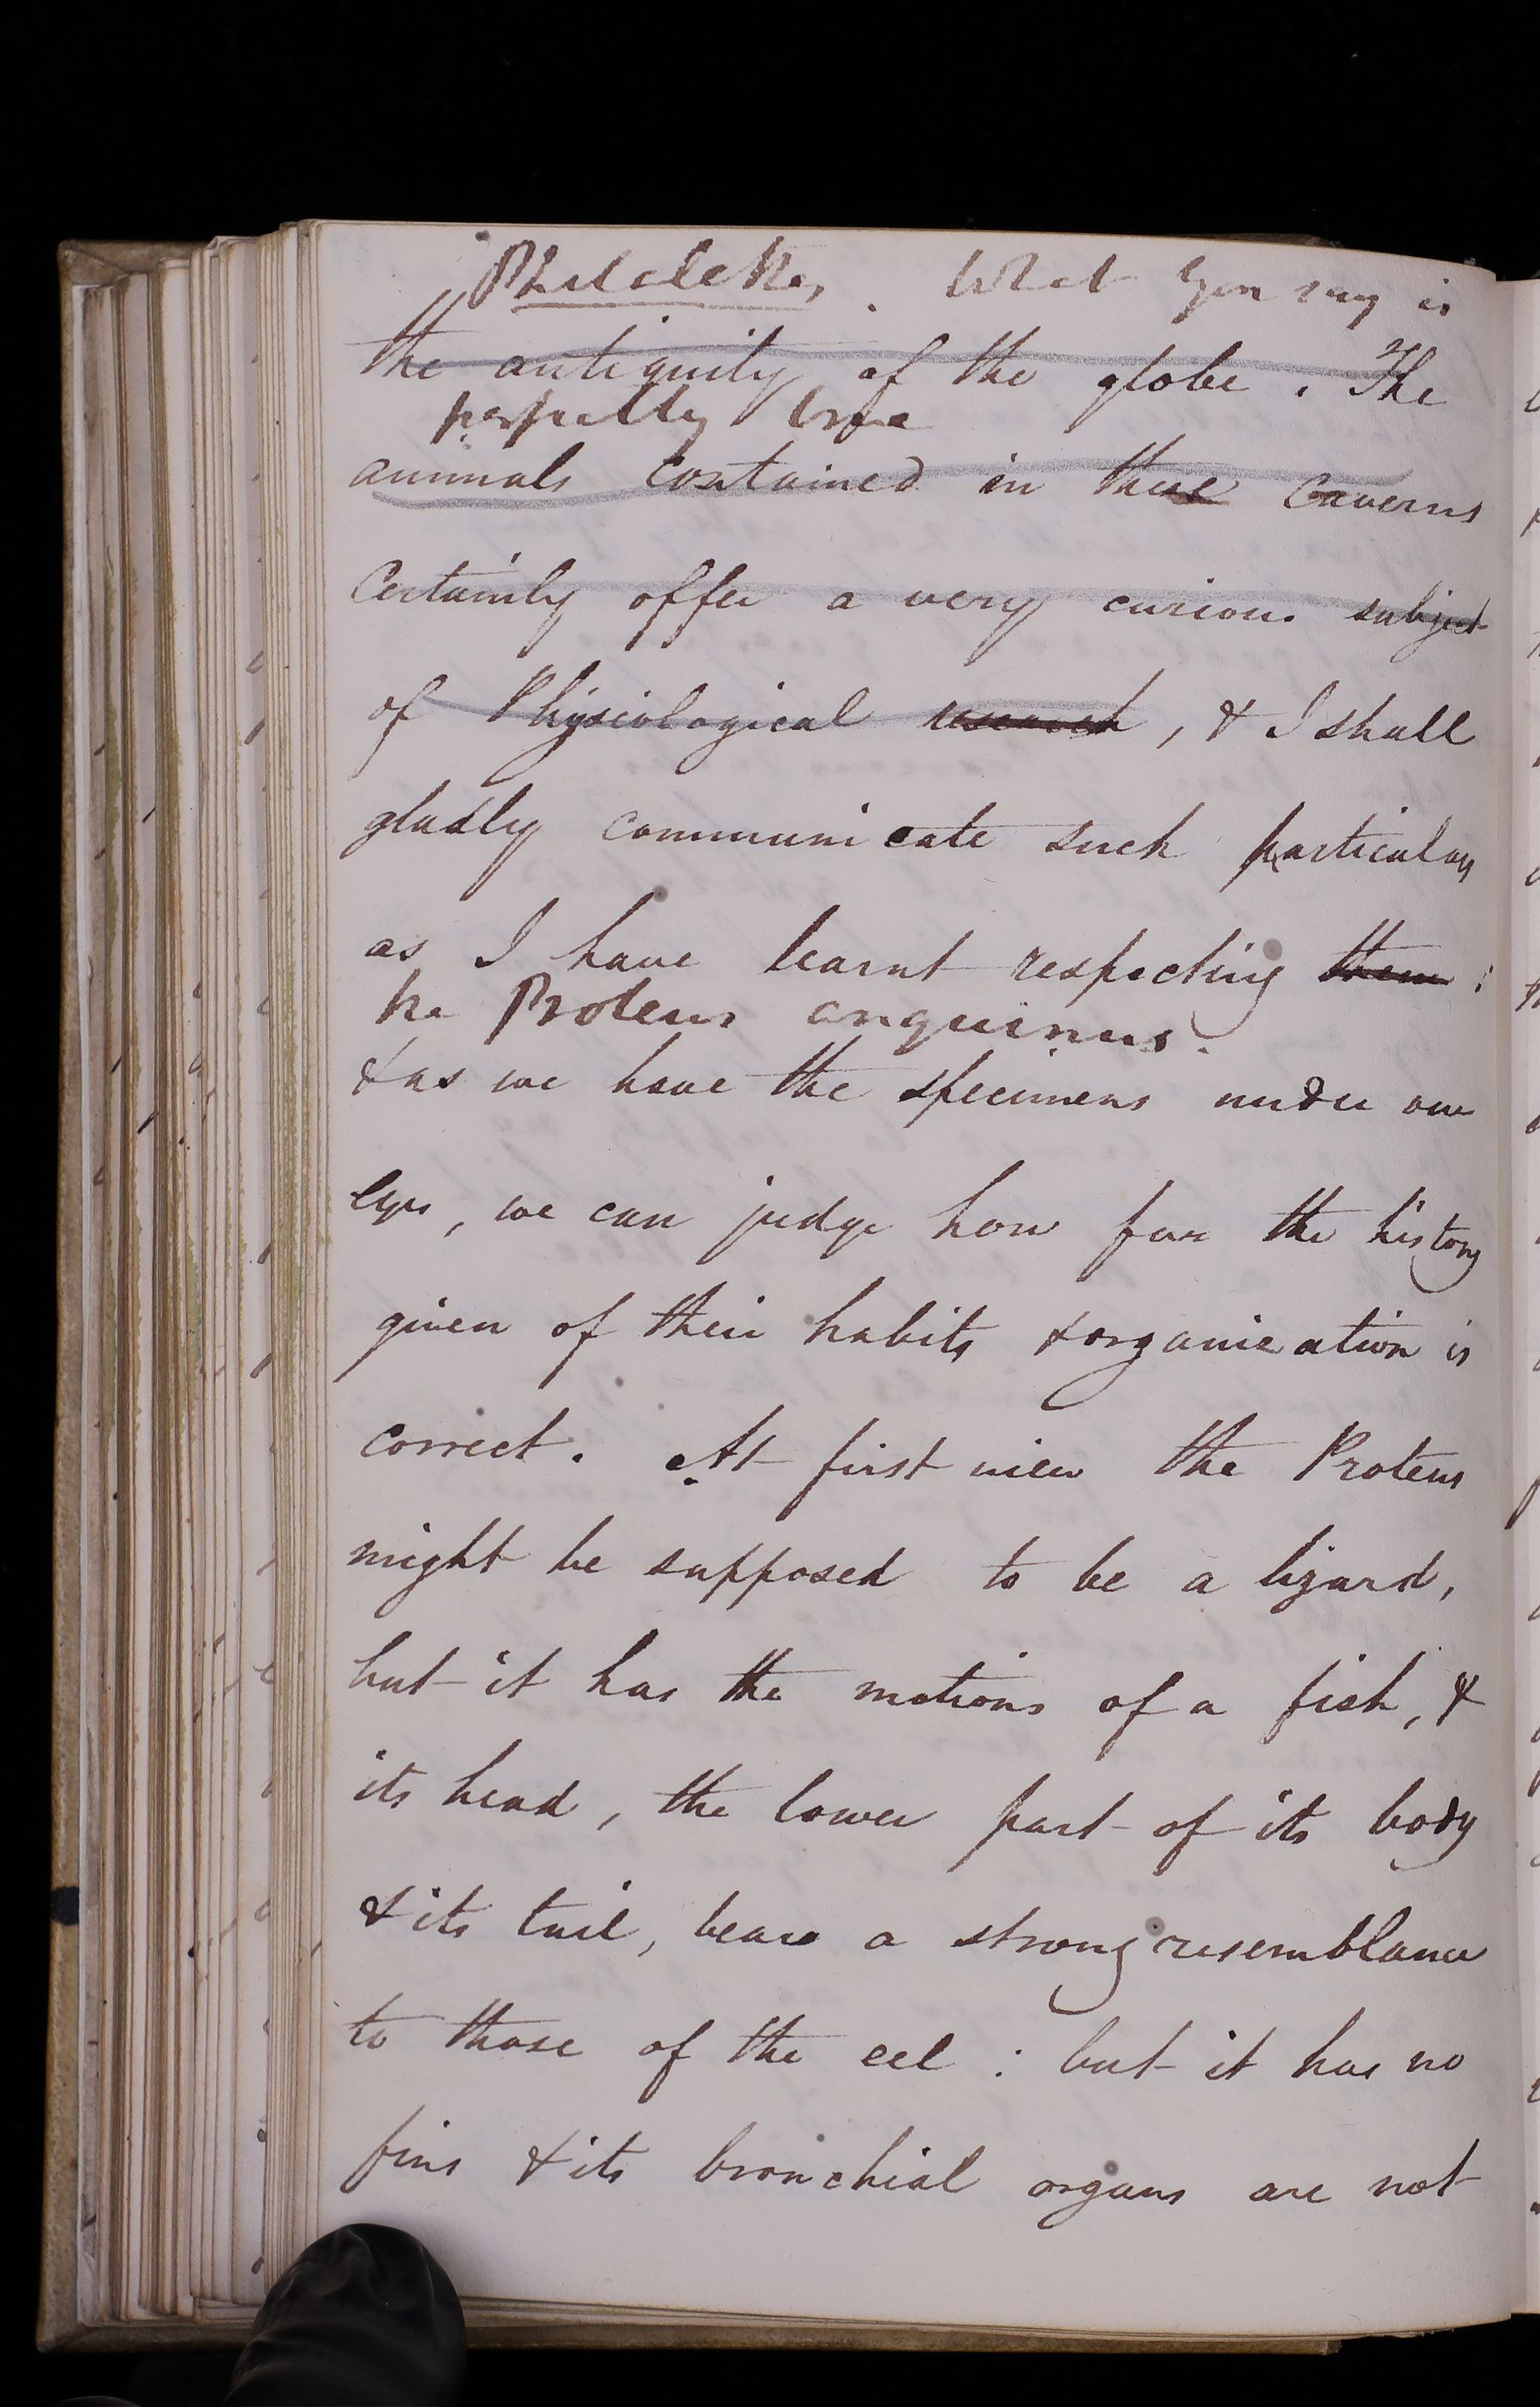 Philalethes. What you say is
the antiquity of the globe. The
perfectly true
animals contained in these Caverns
Certainly offer a very curious subject
of Physiological research, & I shall
gladly communicate such particulars
as I have learnt respecting them:
the Proteus anguinus.
& as we have the specimens under our
eyes, we can judge how far the history
given of their habits & organization is
correct. At first view the Proteus
might be supposed to be a lizard,
but it has the motions of a fish, &
its head, the lower part of its body
& its tail, bears a strong resemblance
to those of the eel: but it has no
fins & its bronchial organs are not